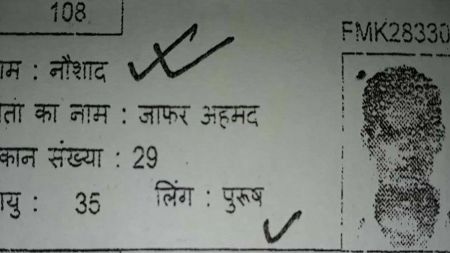 108
FMK28330
नाम : नौशाद
पिता का नाम : जाफर अहमद
मकान संख्या : 29
आयु : 35 लिंग : पुरूष